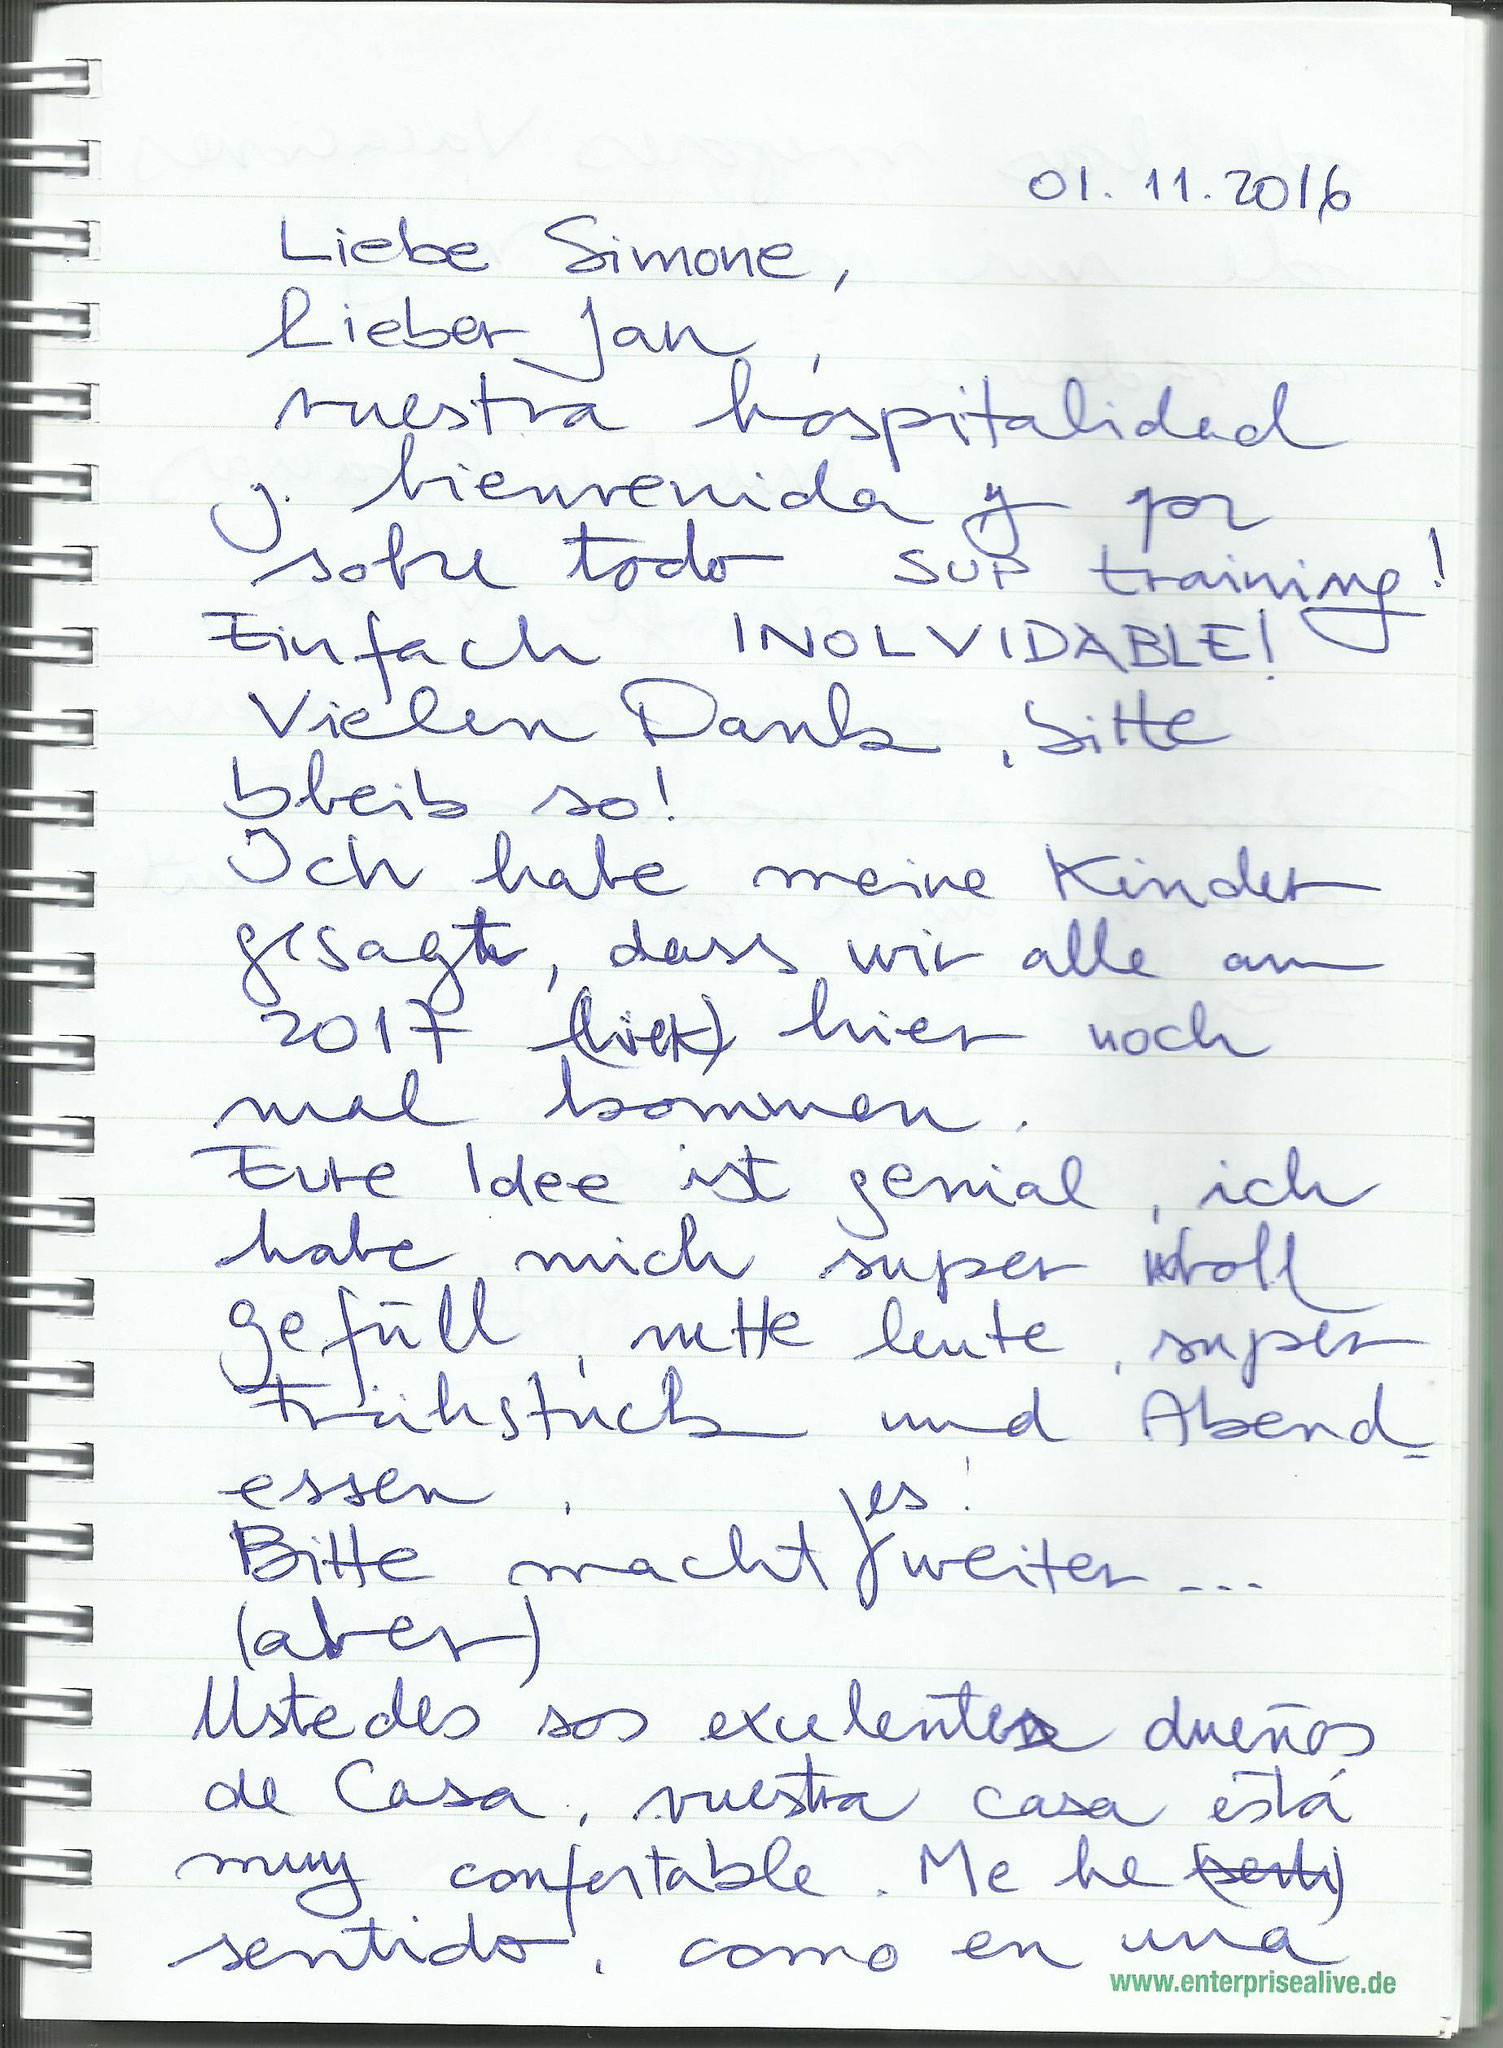 01.11.2016
Liebe Simone,
Lieber Jan,
vuestra hospitalidad
y bienvenida y por
sobre todo SUP training!
Einfach INOLVIDABLE!
Vielen Dank, bitte
bleib so!
Ich habe meine Kinder
gesagt, dass wir alle am
2017 (hier) hier noch
mal kommen.
Eure Idee ist genial, ich
habe mich super woll
gefüll, nette leute, super
Frühstück und Abend_
essen.
Bitte macht es! weiter ...
(aber)
Ustedes sos exelentes dueños
de Casa, vuestra casa está
muy confortable. Me he (senti)
sentido, como en una
www.enterprisealive.de